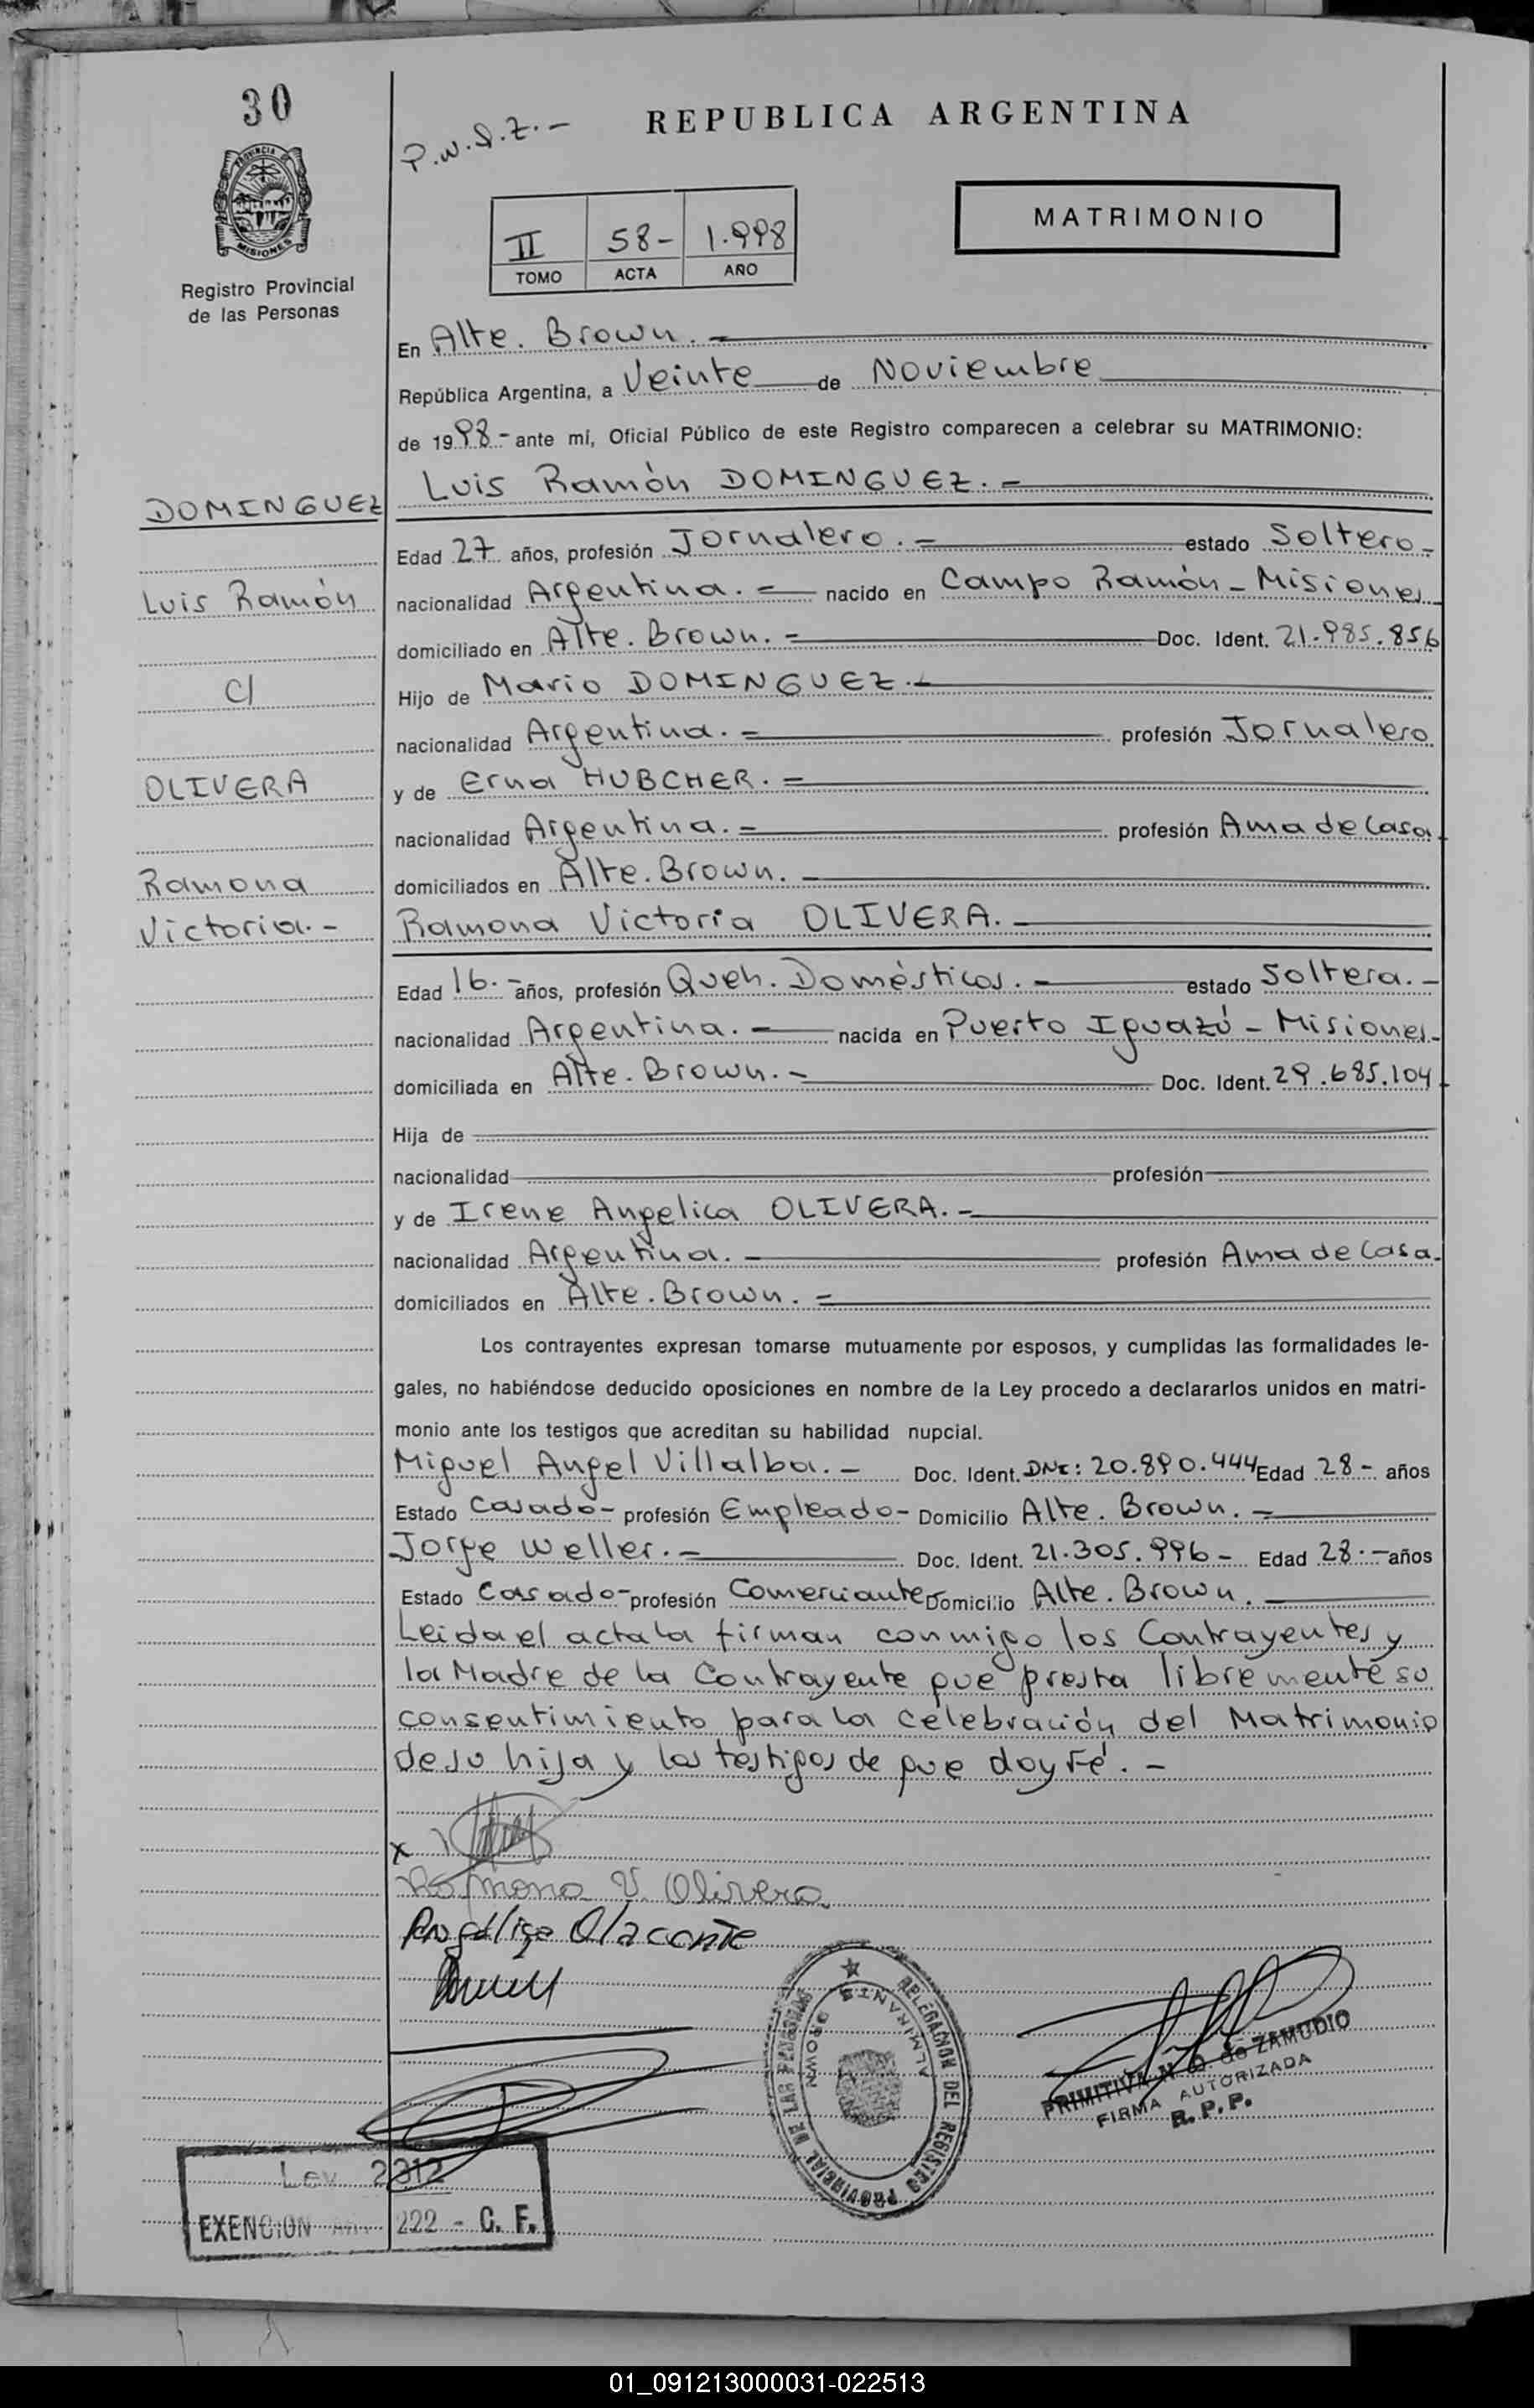 30
P.W.S.Z.-
REPUBLICA ARGENTINA
PROVINCIA DE
MISIONES
Registro Provincial
de las Personas
II 58- 1.998
TOMO ACTA AÑO
MATRIMONIO
En Alte. Brown.-
República Argentina, a Veinte de Noviembre
de 1998- ante mí, Oficial Público de este Registro comparecen a celebrar su MATRIMONIO:
DOMINGUEZ Luis Ramón DOMINGUEZ.-
Edad 27 años, profesión Jornalero.- estado Soltero-
Luis Ramón nacionalidad Argentina.- nacido en Campo Ramón-Misiones
domiciliado en Alte. Brown.- Doc. Ident. 21.985.856
C/ Hijo de Mario DOMINGUEZ.-
nacionalidad Argentina.- profesión Jornalero
OLIVERA y de Erna HUBCHER.-
nacionalidad Argentina.- profesión Ama de Casa.
Ramona domiciliados en Alte. Brown.-
Victoria.- Ramona Victoria OLIVERA.-
Edad 16.- años, profesión Queh. Domésticos.- estado Soltera.-
nacionalidad Argentina.- nacida en Puerto Iguazú - Misiones-
domiciliada en Alte. Brown.- Doc. Ident. 29.685.104
Hija de
nacionalidad profesión
y de Irene Angelica OLIVERA.-
nacionalidad Argentina.- profesión Ama de Casa.
domiciliados en Alte. Brown.-
Los contrayentes expresan tomarse mutuamente por esposos, y cumplidas las formalidades le-
gales, no habiéndose deducido oposiciones en nombre de la Ley procedo a declararlos unidos en matri-
monio ante los testigos que acreditan su habilidad nupcial.
Miguel Angel Villalba.- Doc. Ident. DNI: 20.890.444 Edad 28- años
Estado Casado- profesión Empleado- Domicilio Alte. Brown.-
Jorge Weller.- Doc. Ident. 21.305.996- Edad 28.- años
Estado Casado- profesión Comerciante Domicilio Alte. Brown.
Leida el acta la firman conmigo los Contrayentes y
la Madre de la Contrayente que presta libremente su
consentimiento para la celebración del Matrimonio
de su hija y los testigos de que doy Fé.-
x
Ramona V. Olivera
DELEGACION DEL REGISTRO PROVINCIAL DE LAS PERSONAS
ALMIRANTE BROWN
PRIMITIVA N. de ZAMUDIO
FIRMA AUTORIZADA
R. P. P.
Ley 2312
EXENCION Art. 222 - C. F.
01_091213000031-022513